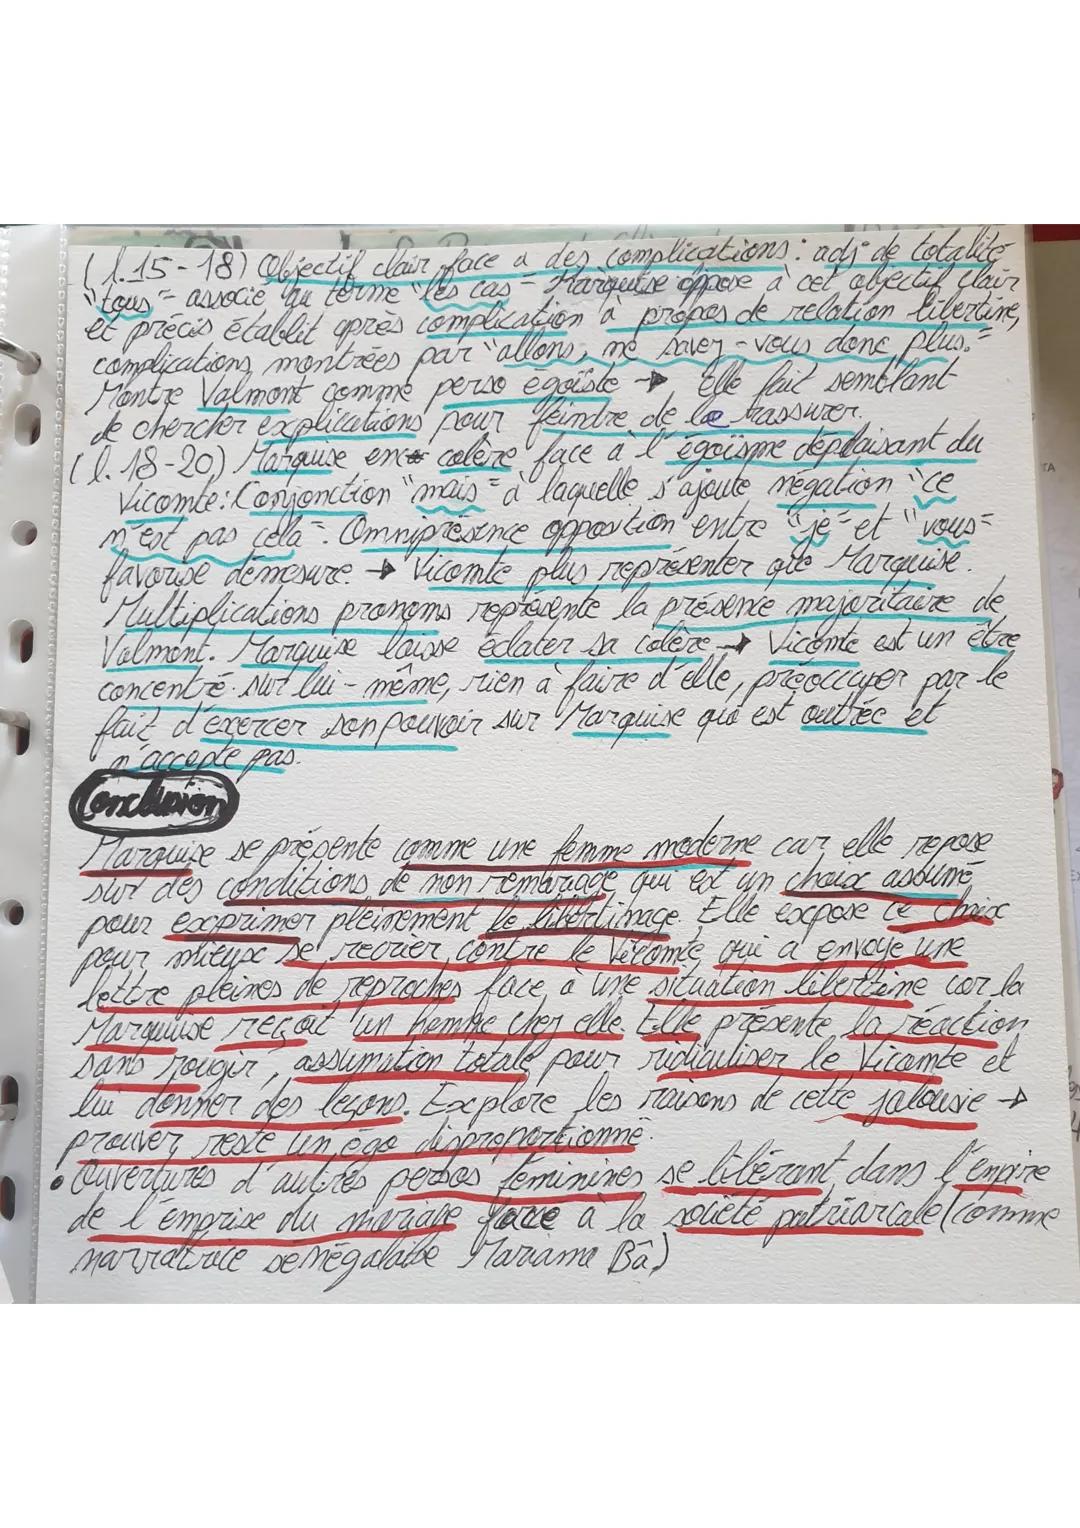 (l.15-18) Objectif clair face a des complications : adj de totalité
"tous" associé au terme "les cas" - Marquise oppose à cet objectif clair
et précis établit après complication à propos de relation libertine,
complications montrées par "allons, me savez-vous donc plus."
Montre Valmont comme perso égoïste → Elle fait semblant
de chercher explications pour feindre de le rassurer.
(l.18-20) Marquise en colère face à l'égoïsme deplaisant du
Vicomte : Conjonction "mais" à laquelle s'ajoute négation "ce
n'est pas cela". Omniprésence opposition entre "je" et "vous"
favorise démesure. → Vicomte plus représenter que Marquise.
Multiplications pronoms représente la présence majoritaire de
Valmont. Marquise laisse éclater sa colère → Vicomte est un être
concentré sur lui-même, rien à faire d'elle, préoccuper par le
fait d'exercer son pouvoir sur Marquise qui est outrée et
n'accepte pas.
Conclusion
Marquise se présente comme une femme moderne car elle repose
sur des conditions de non remariage qui est un choix assumé
pour exprimer pleinement le libertinage. Elle expose ce choix
pour mieux se recrier contre le Vicomte qui a envoyé une
lettre pleines de reproches face à une situation libertine car la
Marquise reçoit un homme chez elle. Elle présente la réaction
sans rougir, assumation totale pour ridiculiser le Vicomte et
lui donner des leçons. Explore les raisons de cette jalousie →
prouver reste un égo disproportionné.
• Ouvertures d'autres persos féminines se libérant dans l'empire
de l'emprise du mariage face à la société patriarcale (comme
narratrice sénégalaise Mariama Bâ)